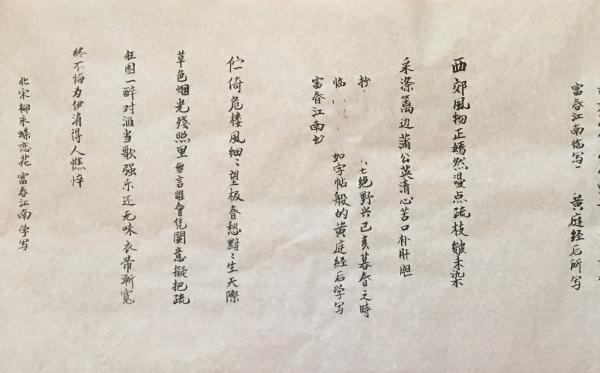 富春江南临写 黄庭经后所写
西郊風物正嫣然漫点疏枝皴未染
采滌篱边蒲公英清心苦口补肝胆
抄 七绝野兴己亥暮春之時
临 如字帖般的黄庭经后学写
富春江南书
伫倚危楼風细〻望极春愁黯〻生天際
草色烟光殘照里無言誰會凭闌意擬把疏
狂图一醉对酒当歌强乐还无味衣带漸宽
终不悔为伊消得人憔悴
北宋柳永蝶恋花 富春江南学写